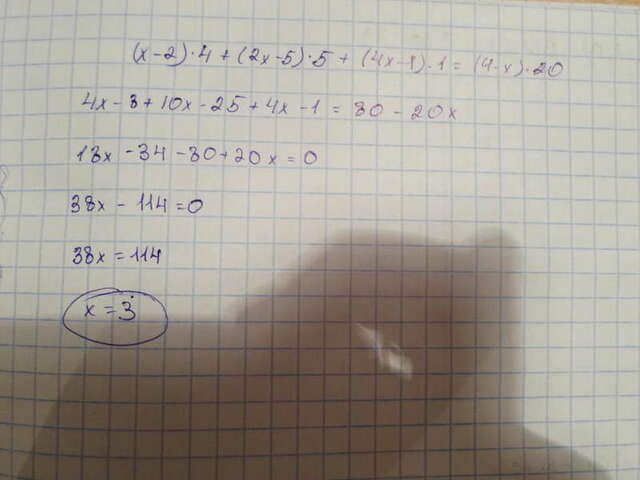 (x-2)·4+(2x-5)·5+(4x-1)·1=(4-x)·20
4x-8+10x-25+4x-1=80-20x
18x-34-80+20x=0
38x-114=0
38x=114
x=3